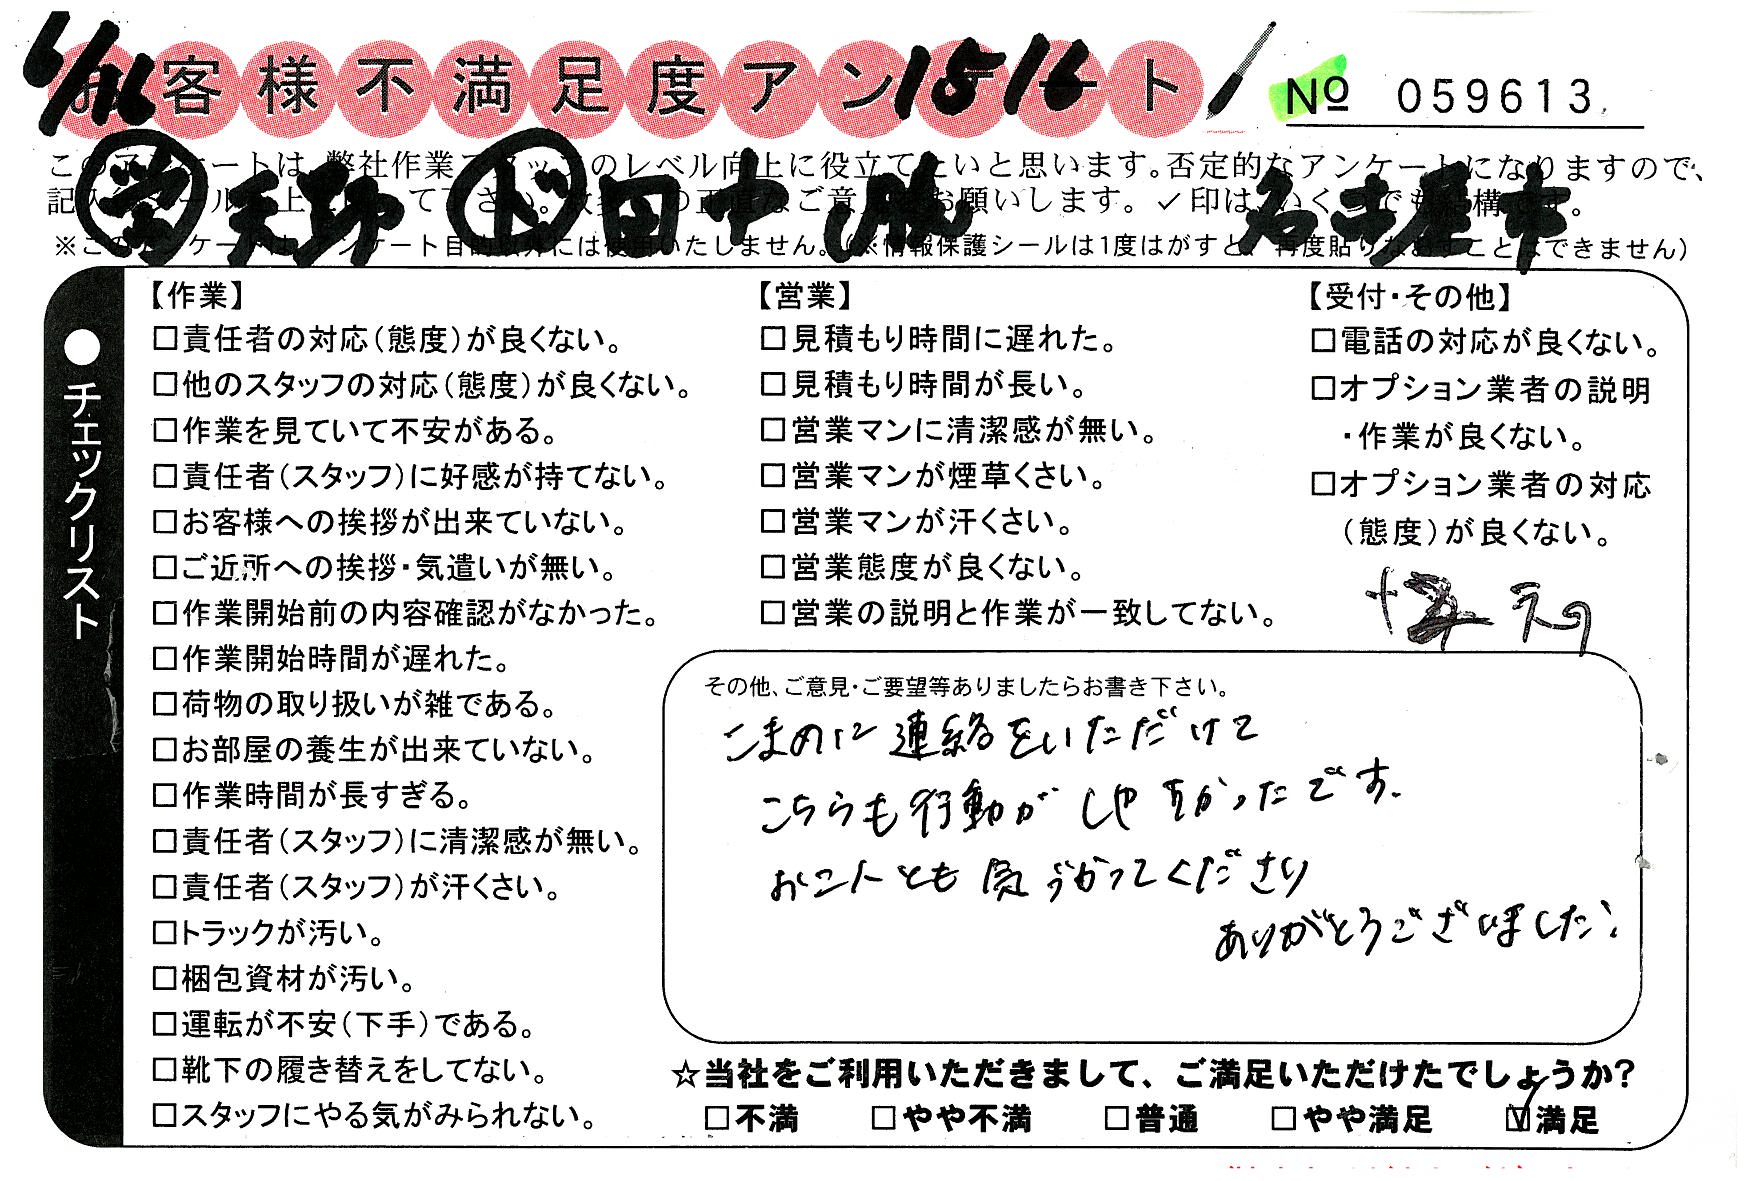 6/16 お客様不満足度アンケート 1516
№ 059613
このアンケートは、弊社作業スタッフのレベル向上に役立てたいと思います。否定的なアンケートになりますので、
営 天野 ド 田中 名古屋市
※このアンケートは、アンケート目的以外には使用いたしません。(※情報保護シールは1度はがすと、再度貼りなおすことはできません)
●チェックリスト
【作業】
□責任者の対応(態度)が良くない。
□他のスタッフの対応(態度)が良くない。
□作業を見ていて不安がある。
□責任者(スタッフ)に好感が持てない。
□お客様への挨拶が出来ていない。
□ご近所への挨拶・気遣いが無い。
□作業開始前の内容確認がなかった。
□作業開始時間が遅れた。
□荷物の取り扱いが雑である。
□お部屋の養生が出来ていない。
□作業時間が長すぎる。
□責任者(スタッフ)に清潔感が無い。
□責任者(スタッフ)が汗くさい。
□トラックが汚い。
□梱包資材が汚い。
□運転が不安(下手)である。
□靴下の履き替えをしてない。
□スタッフにやる気がみられない。
【営業】
□見積もり時間に遅れた。
□見積もり時間が長い。
□営業マンに清潔感が無い。
□営業マンが煙草くさい。
□営業マンが汗くさい。
□営業態度が良くない。
□営業の説明と作業が一致してない。
【受付・その他】
□電話の対応が良くない。
□オプション業者の説明
・作業が良くない。
□オプション業者の対応
(態度)が良くない。
その他、ご意見・ご要望等ありましたらお書き下さい。
こまめに連絡をいただけて
こちらも行動がしやすかったです。
お二人とも気づかってくださり
ありがとうございました!
☆当社をご利用いただきまして、ご満足いただけたでしょうか?
□不満 □やや不満 □普通 □やや満足 ☑満足